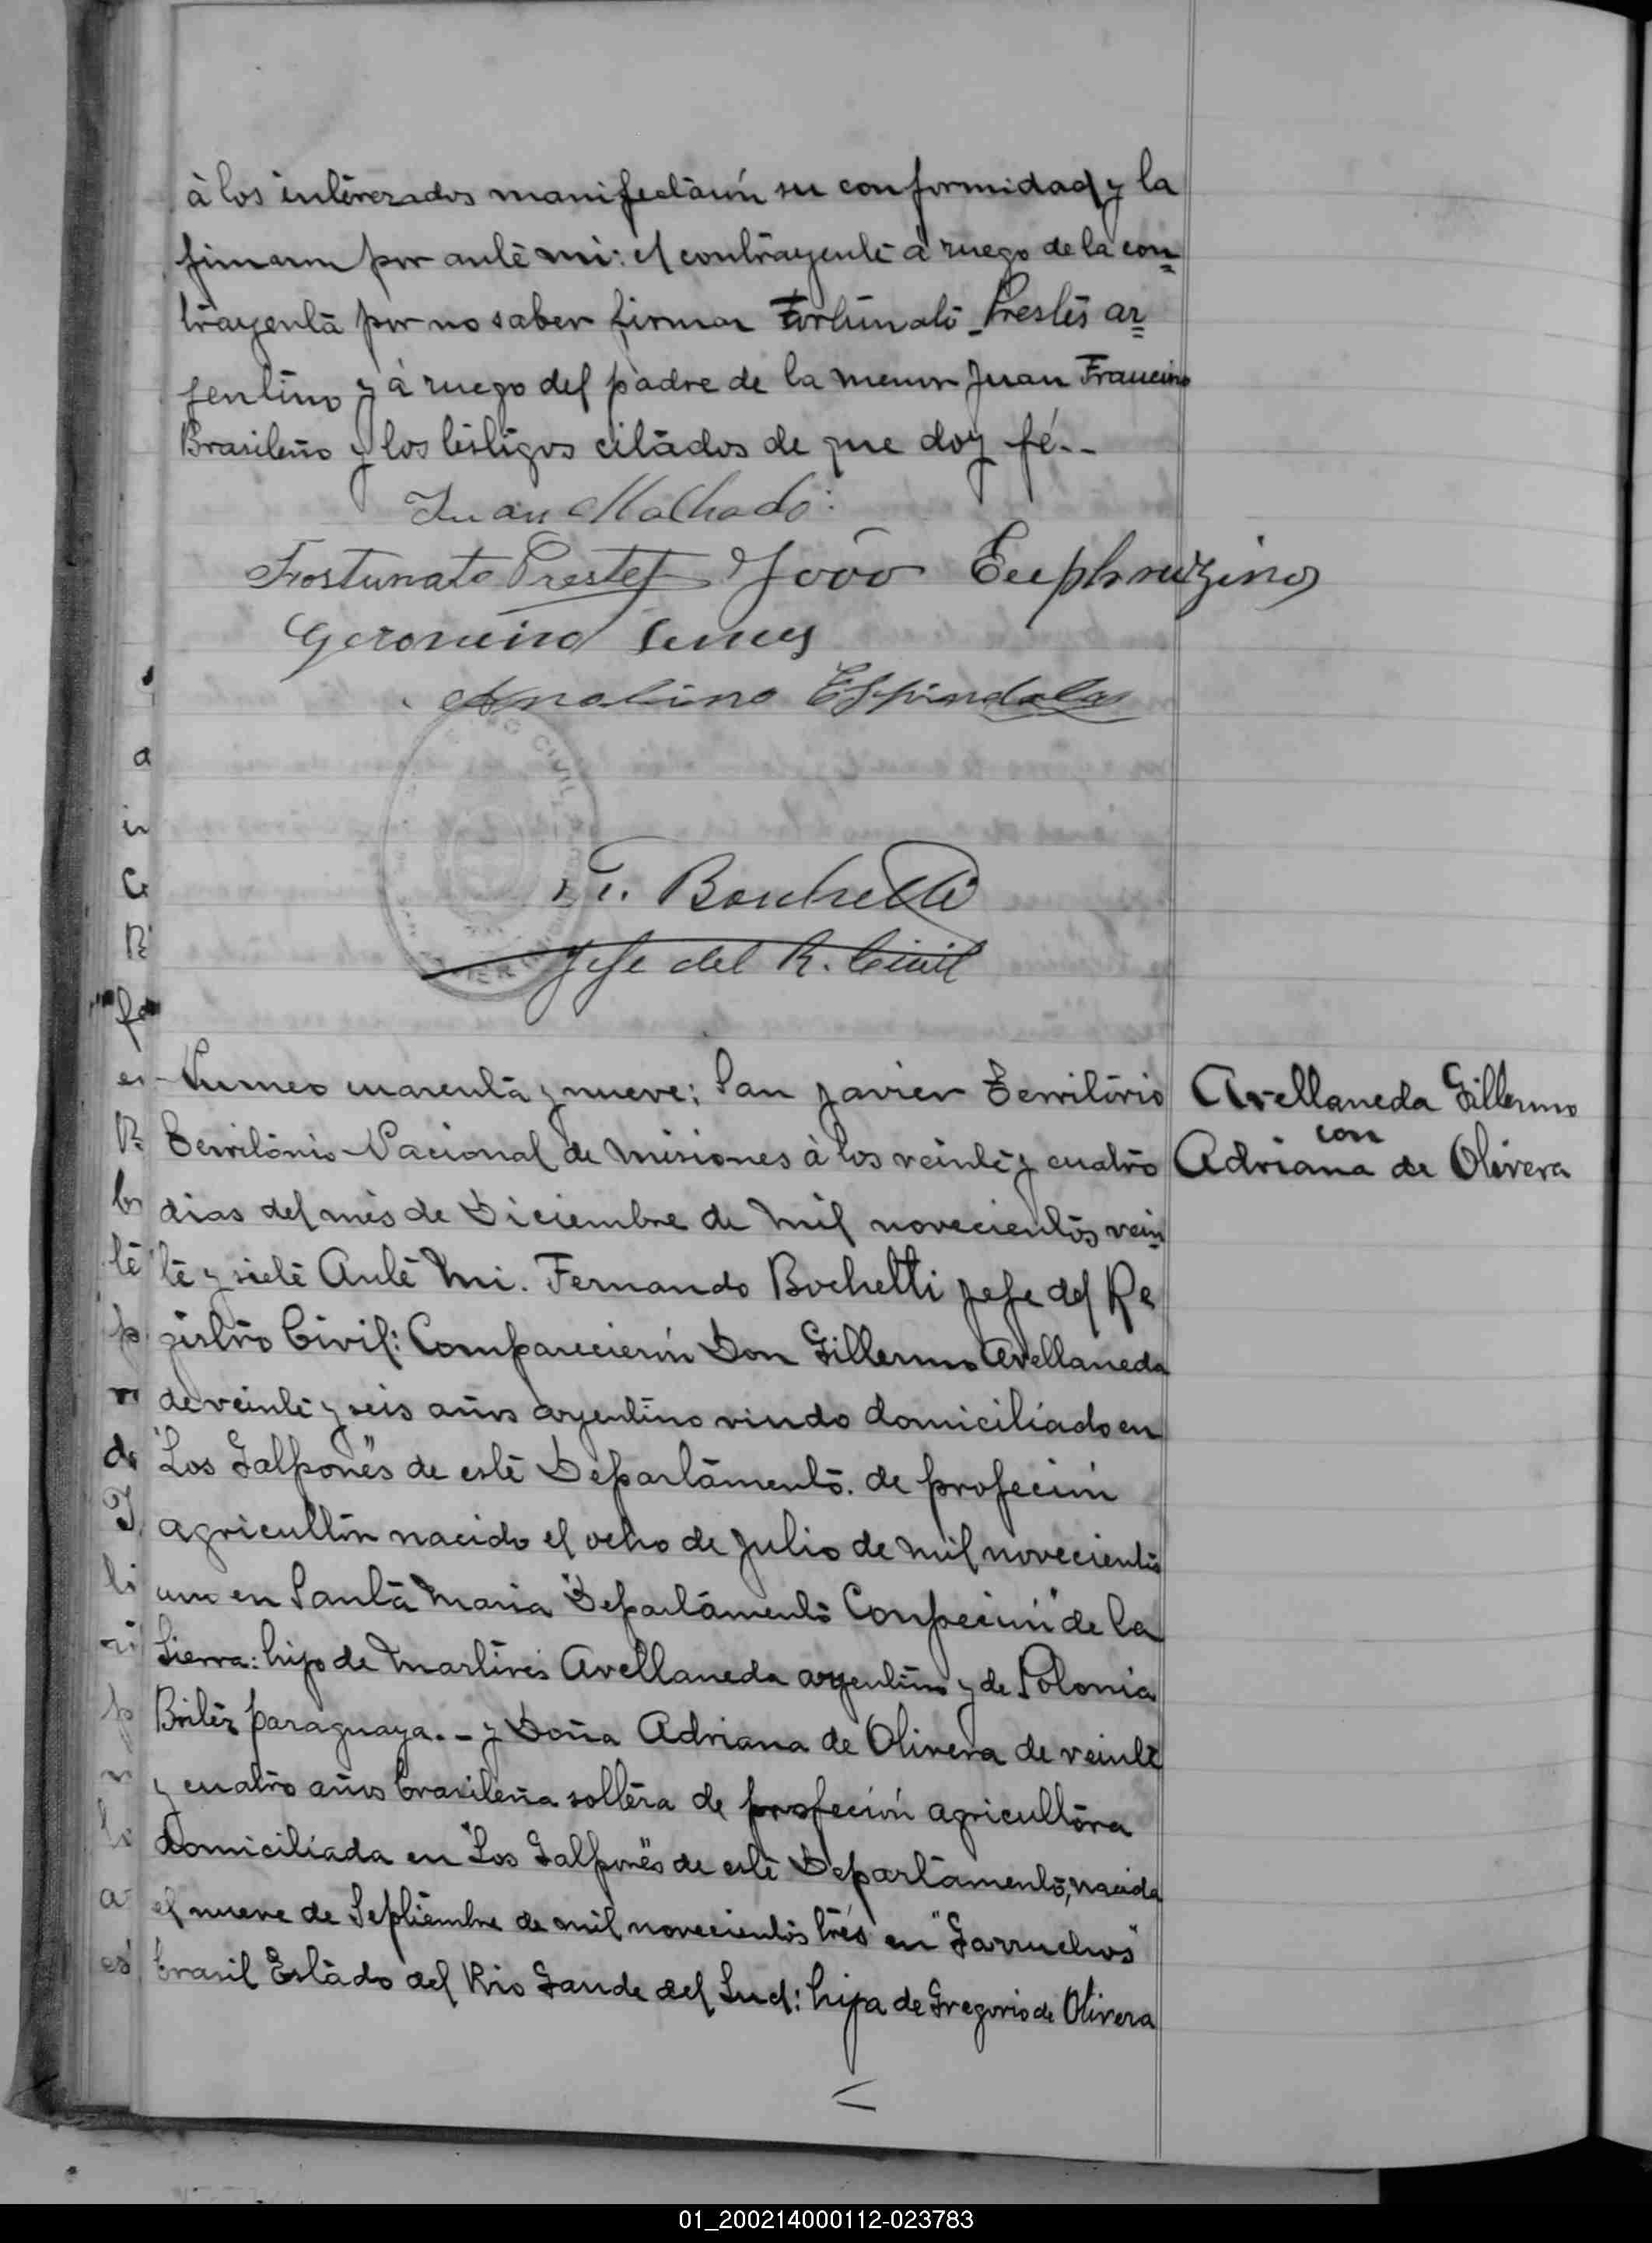 à los interezados manifestarón su conformidad y la
firmaron por ante mi: el contrayente à ruego de la con=
trayenta por no saber firmar Fortunato Prestes ar=
gentino y à ruego del padre de la menor Juan Francino
Brasileño y los testigos citados de que doy fé.--
Juan Malhado:
Frostunato Prestes João Euphruzino
Geronimo
Analino Espindola
CIVIL
F. Bochetti
Jefe del R. Civil
Numero cuarenta y nueve; San Javier Territorio
Territorio Nacional de Misiones à los veinte y cuatro
dias del mes de Diciembre de mil novecientos vein=
te y siete Ante Mi. Fernando Bochetti Jefe del Re
gistro Civil: Comparecierón Don Gillermo Avellaneda
de veinte y seis años argentino viudo domiciliado en
"Los Galpones" de este Departamento. de profeción
agricultor nacido el ocho de Julio de mil novecientos
uno en Santa Maria Departamento "Conpeción" de la
Sierra: hijo de Martires Avellaneda argentino y de Polonia
Britez paraguaya.- y Doña Adriana de Olivera de veinte
y cuatro años brasileña soltera de profeción agricultora
domiciliada en "Los Galpones" de este Departamento, nacida
el nueve de Septiembre de mil novecientos trés en "Garruchos"
brasil Estado del Rio Gande del Sud: hija de Gregorio de Olivera
Avellaneda Gillermo
con
Adriana de Olivera
01_200214000112-023783